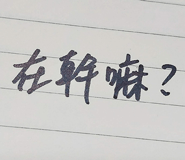 在幹嘛？